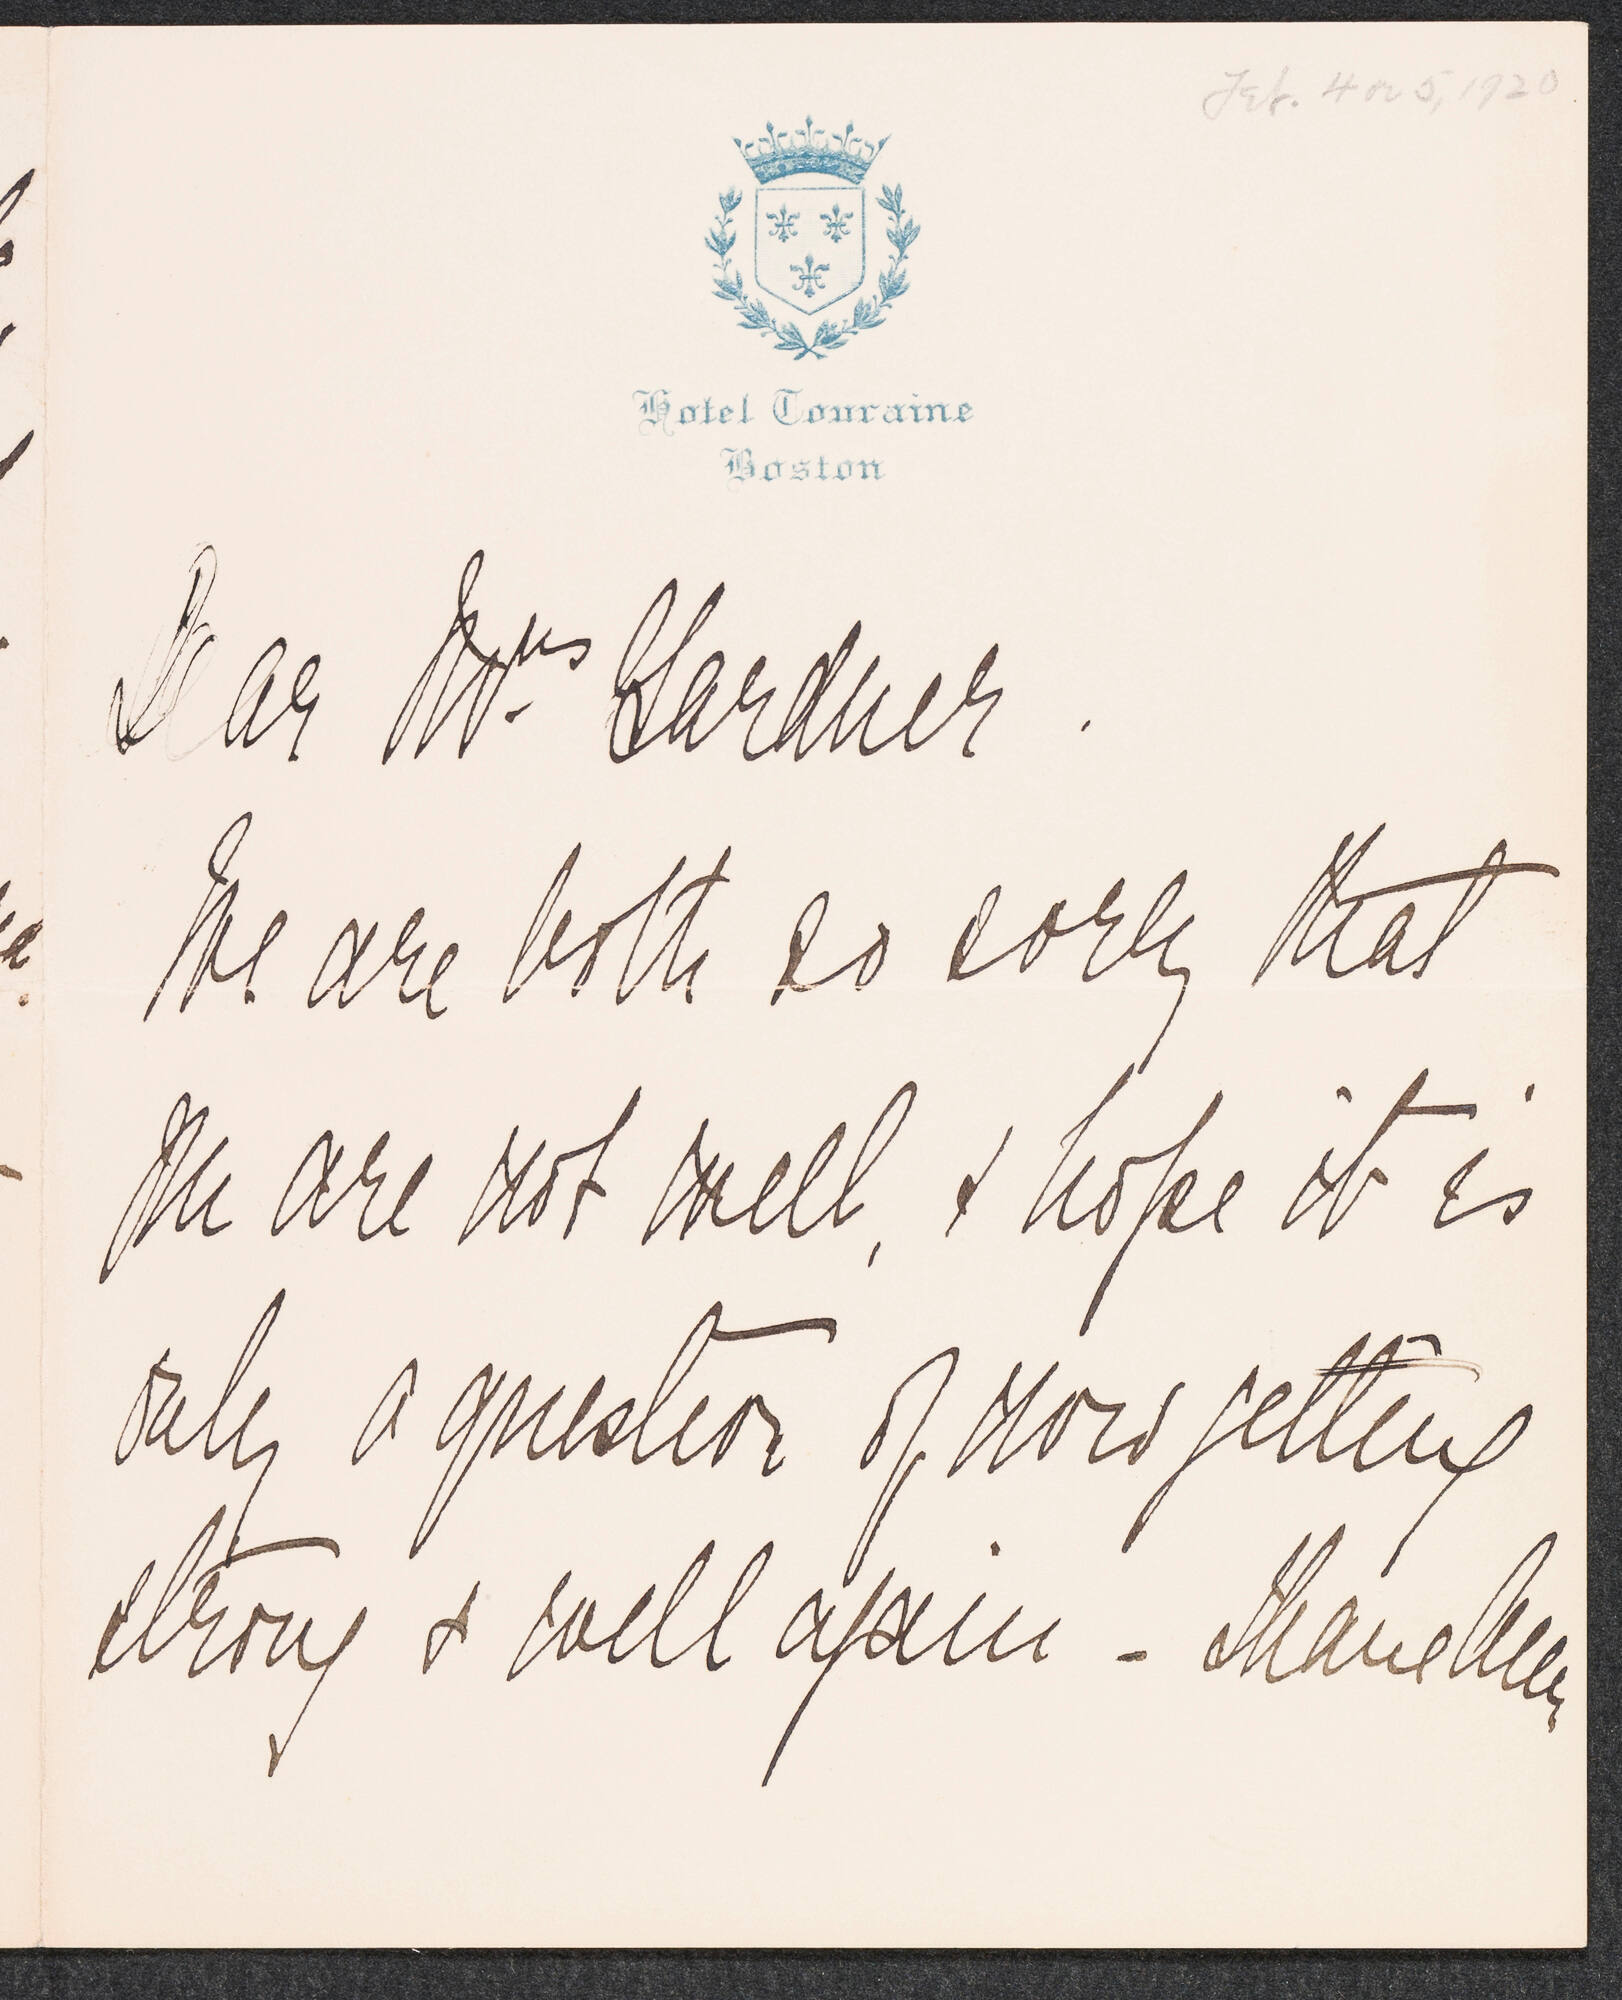 Feb. 4 or 5, 1920
Hotel Touraine
Boston
Dear Mrs. Gardner.
We are both so sorry that
you are not well, & hope it is
only a question of now getting
strong & well again -